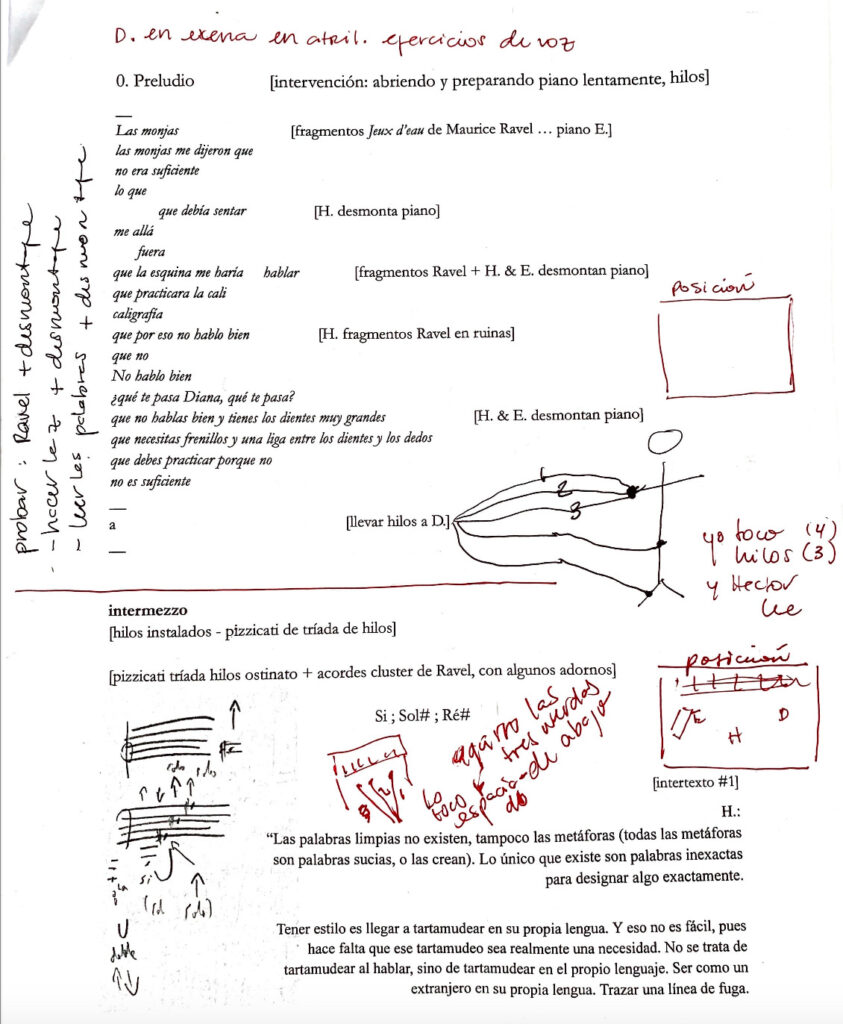 D. en escena en atril. ejercicios de voz
0. Preludio [intervención: abriendo y preparando piano lentamente, hilos]
Las monjas [fragmentos Jeux d'eau de Maurice Ravel … piano E.]
las monjas me dijeron que
no era suficiente
lo que
que debía sentar [H. desmonta piano]
me allá
fuera
que la esquina me haría hablar [fragmentos Ravel + H. & E. desmontan piano]
que practicara la cali
caligrafía
que por eso no hablo bien [H. fragmentos Ravel en ruinas]
que no
No hablo bien
¿qué te pasa Diana, qué te pasa?
que no hablas bien y tienes los dientes muy grandes [H. & E. desmontan piano]
que necesitas frenillos y una liga entre los dientes y los dedos
que debes practicar porque no
no es suficiente
—
a [llevar hilos a D.]
—
probar: Ravel + desmontaje
- hacer la z + desmontaje
- leer les palabras + desmontaje
posición
1
2
3
yo toco (4)
hilos (3)
y Hector
lee
intermezzo
[hilos instalados - pizzicati de tríada de hilos]
[pizzicati tríada hilos ostinato + acordes cluster de Ravel, con algunos adornos]
Si ; Sol# ; Ré#
agarro las
tres cuerdas
de abajo
lo
toco
posición
E
H
D
[intertexto #1]
H.:
“Las palabras limpias no existen, tampoco las metáforas (todas las metáforas
son palabras sucias, o las crean). Lo único que existe son palabras inexactas
para designar algo exactamente.
Tener estilo es llegar a tartamudear en su propia lengua. Y eso no es fácil, pues
hace falta que ese tartamudeo sea realmente una necesidad. No se trata de
tartamudear al hablar, sino de tartamudear en el propio lenguaje. Ser como un
extranjero en su propia lengua. Trazar una línea de fuga.
si
doble